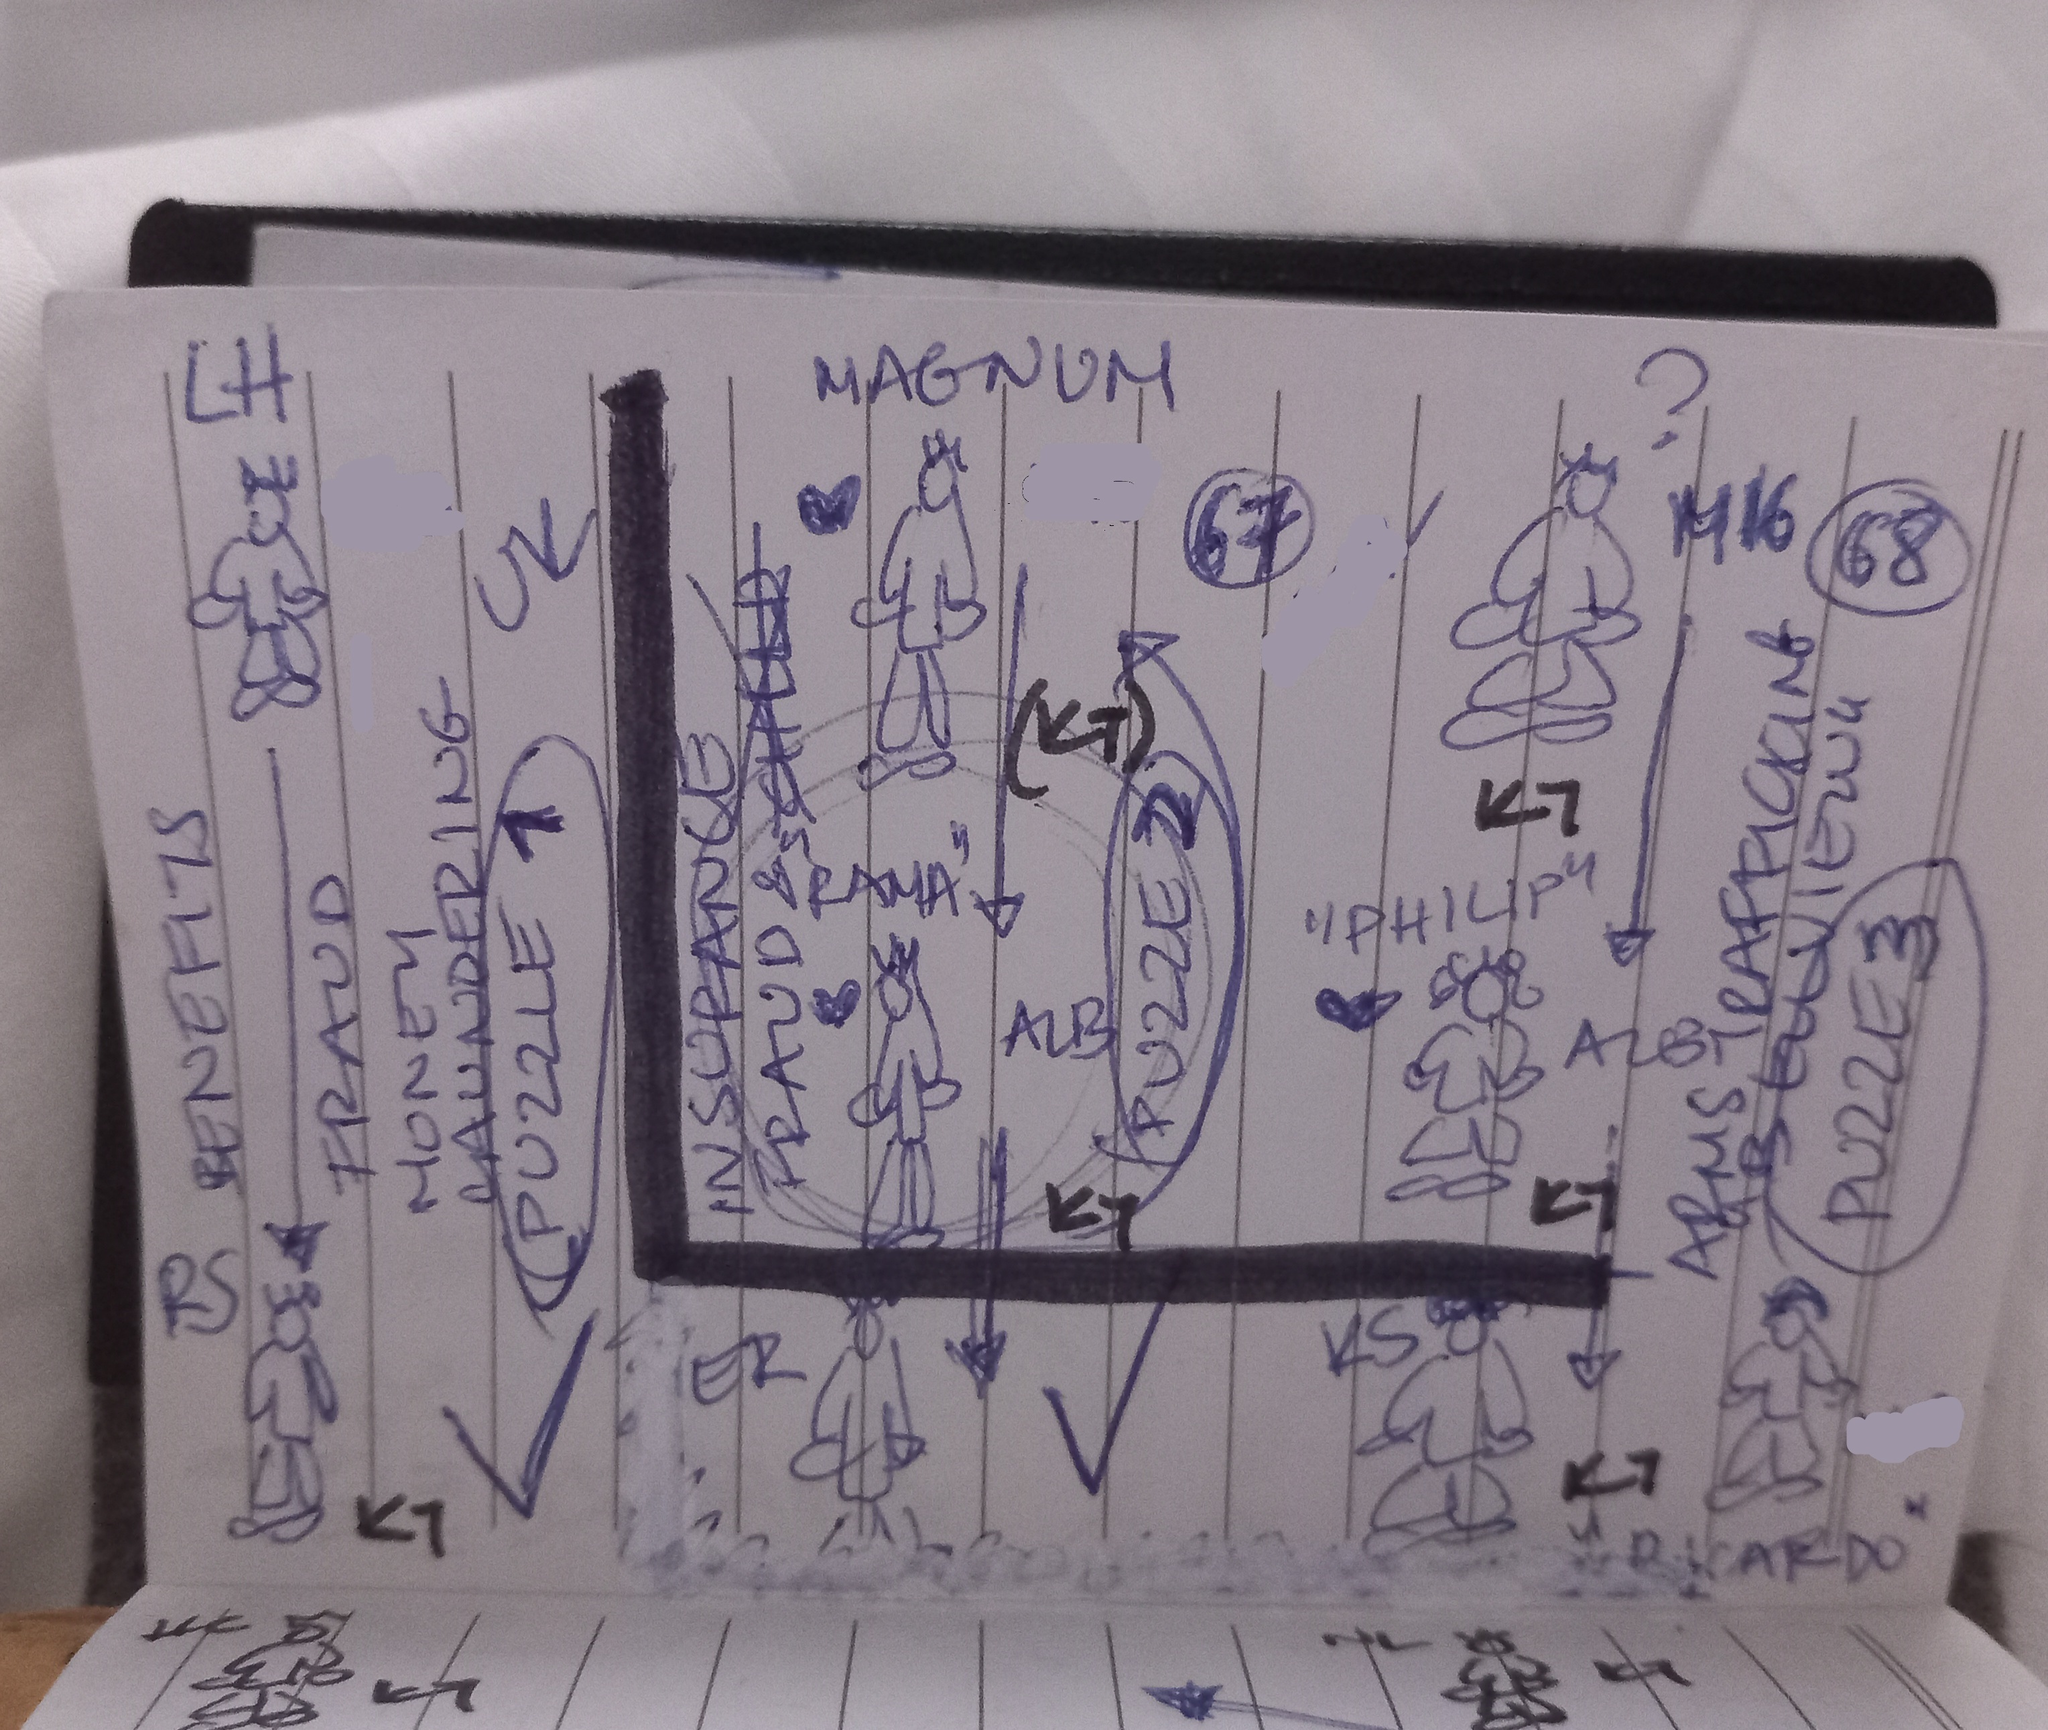 LH
MAGNUM
?
67
M16
68
BENEFITS
FRAUD
MONEY
LAUNDERING
PUZZLE 1
INSURANCE
FRAUD &
"RAMA"
(KT)
ALB
PUZZLE 2
KT
"PHILIP"
ALB
KT
ARMS TRAFFICKING
PUZZLE 3
KT
ER
KS
KT
KT
"RICARDO"